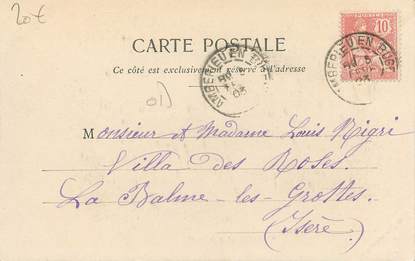 20€
CARTE POSTALE
Ce côté est exclusivement réservé à l'adresse
AMBÉRIEU EN BUGEY
03
10
AMBÉRIEU EN BUGEY
03
01)
Monsieur et Madame Louis Nigri
Villa des Roses.
La Balme-les-Grottes.
(Isère)